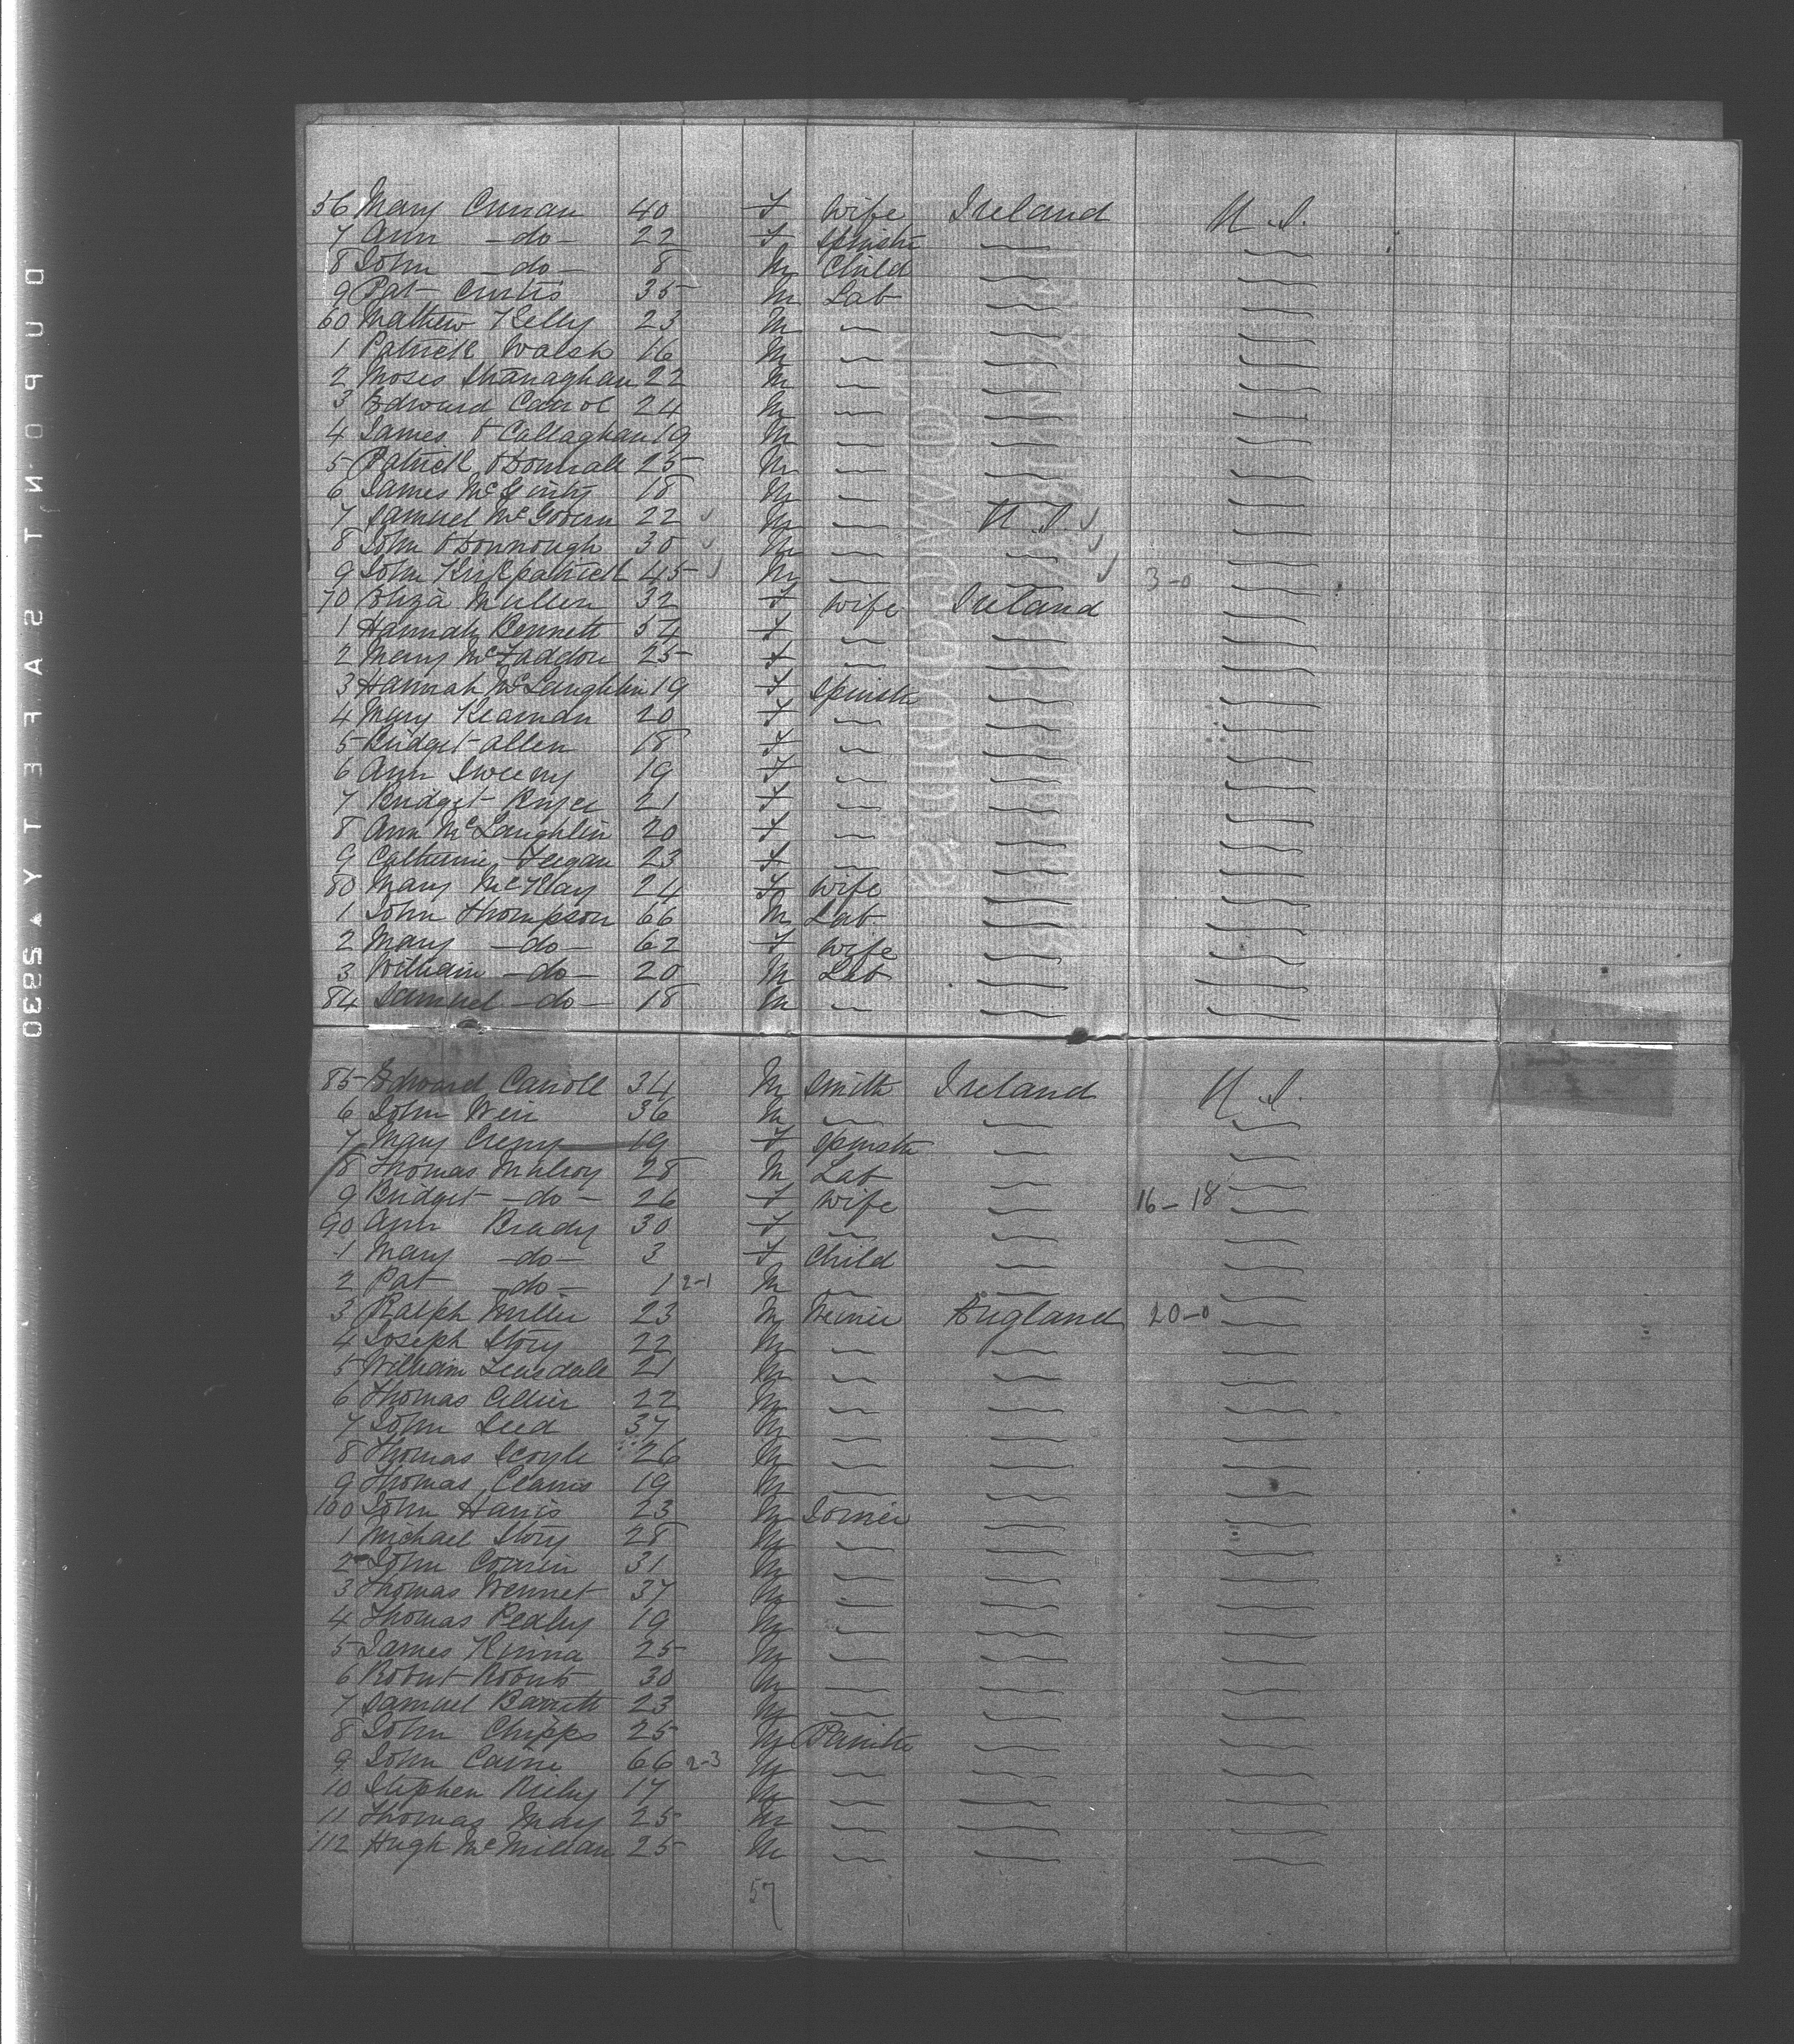 56 Mary Curran 40 F Wife Ireland U.S.
7 Ann -do- 22 F Spinstr
8 John -do- 8 M Child
9 Pat Curtis 35 M Lab
60 Mathew Kelly 23 M
1 Patrick Walsh 16 M
2 Moses Shanaghan 22 M
3 Edward Carrol 24 M
4 James O Callaghan 19 M
5 Patrick ODonnall 25 M
6 James McGinty 18 M
7 Samuel McGovern 22 M U.S
8 John ODonnough 30 M
9 John Kirkpatrick 45 M 3-0
70 Eliza Mullen 32 F Wife Ireland
1 Hannah Bennett 54 F
2 Mary McFaddon 25 F
3 Hannah McLaughlin 19 F Spinstr
4 Mary Kearnan 20 F
5 Bridget Allen 18 F
6 Ann Sweeny 19 F
7 Bridget 21 F
8 Ann McLaughlin 20 F
9 Catherine Feegan 23 F
80 Mary McKay 24 F Wife
1 John Thompson 66 M Lab
2 Mary -do- 62 F Wife
3 William -do- 20 M Lab
84 Samuel -do- 18 M
85 Edward Carroll 34 M Smith Ireland U.S.
6 John Weir 36 M
7 Mary 19 F Spinstr
8 Thomas Mulroy 28 M Lab
9 Bridget -do- 26 F Wife 16-18
90 Ann Brady 30 F
1 Mary -do- 3 F Child
2 Pat -do- 1 2-1 M
3 Ralph Miller 23 M England 20-0
4 Joseph Story 22 M
5 William 21 M
6 Thomas 22 M
7 John 37 M
8 Thomas 26 M
9 Thomas 19 M
100 John Harris 23 M Joiner
1 Michael Story 28 M
2 John 31 M
3 Thomas Wennet 37 M
4 Thomas Pedley 19 M
5 James Kinna 25 M
6 Robert Roberts 30 M
7 Samuel Barrett 23 M
8 John Chipps 25 M Painter
9 John Caine 66 2-3 M
10 Stephen 17 M
11 Thomas May 25 M
112 Hugh McMillan 25 M
57
DUPONT SAFETY 2S830